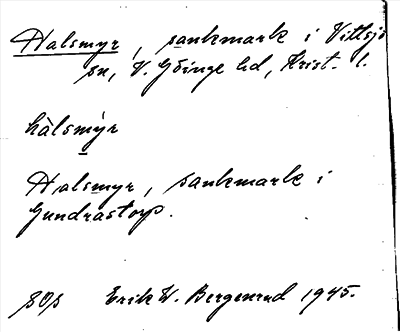 Halsmyr, sankmark i Vittsjö
sn, V. Göinge hd, Krist. l.
hàlsmýr
Halsmyr, sankmark i
Gundrastorp.
Erik W. Bergenrud 1945.